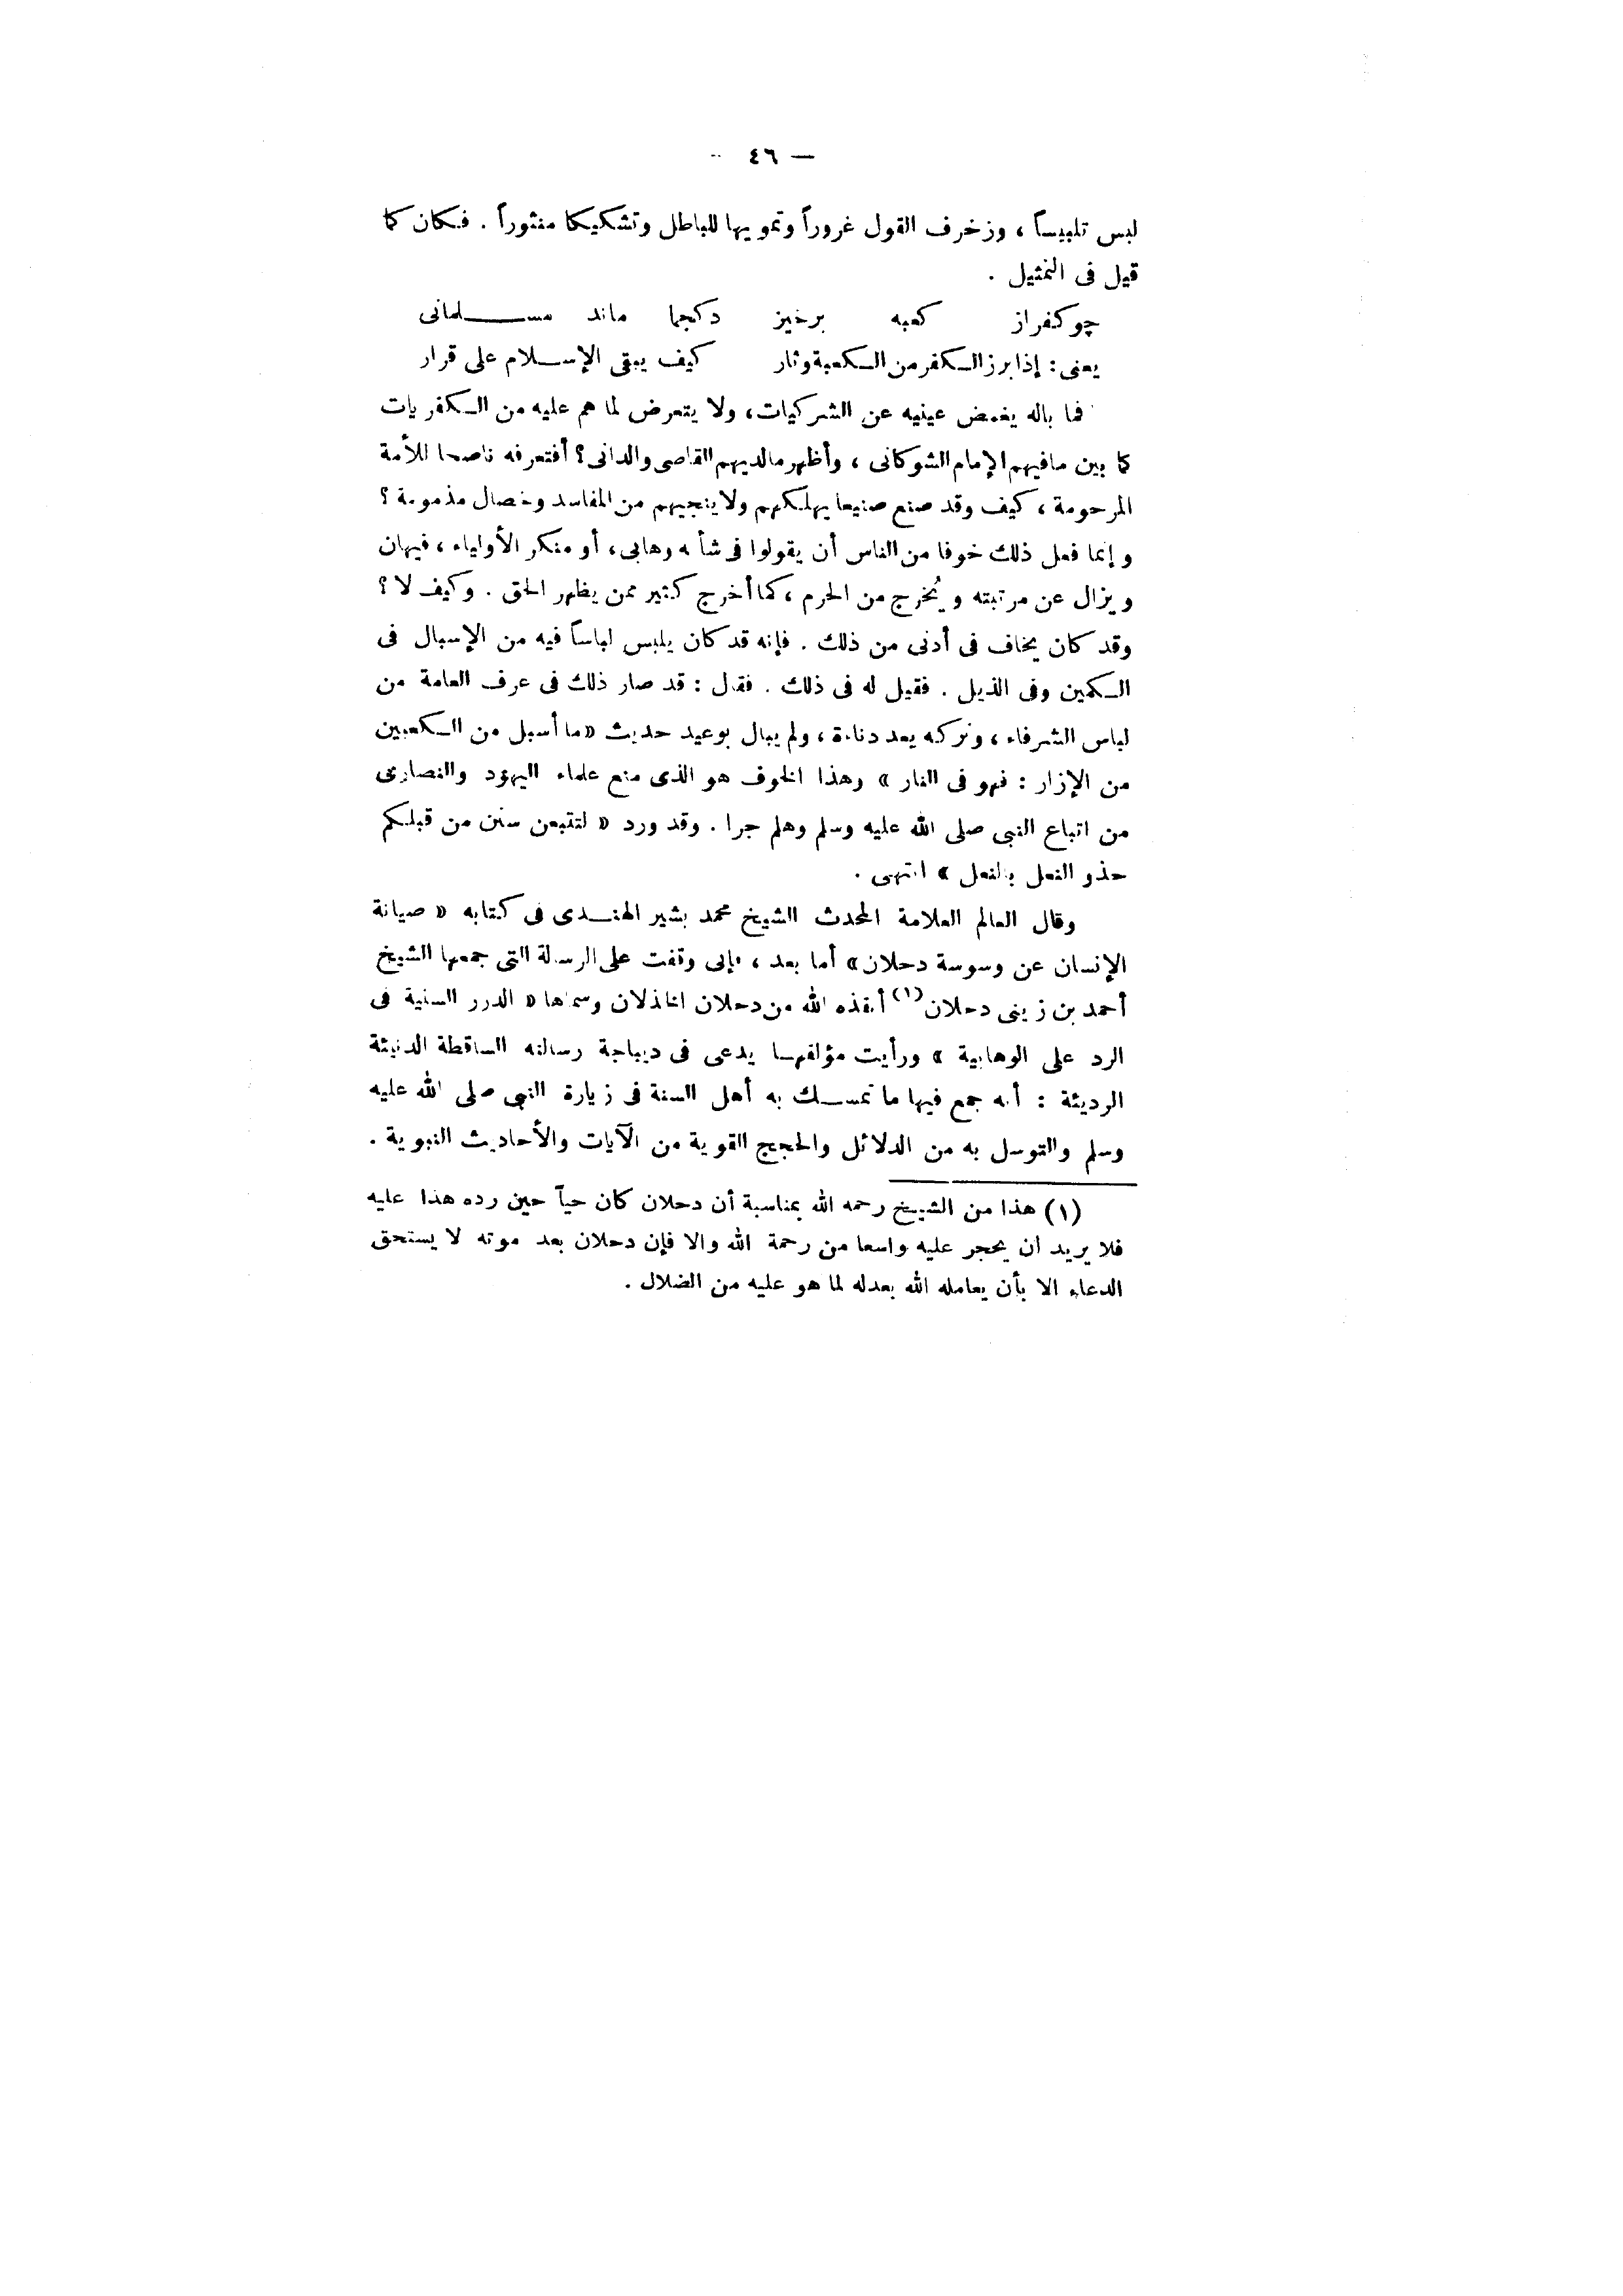 — ٤٦ -
لبس تلبيساً ، وزخرف القول غروراً وتمويها للباطل وتشكيكا منثوراً . فكان كما
قيل فى التمثيل .
چوكفراز كعبه برخيز دكجا ماند مسلمانى
يعنى : إذا برز الكفر من الكعبة وثار كيف يبقى الإسلام على قرار
فما باله يغمض عينيه عن الشركيات ، ولا يتعرض لما هم عليه من الكفريات
كما بين مافيهم الإمام الشوكانى ، وأظهر مالديهم القاصى والدانى ؟ أفتعرفه ناصحا للأمة
المرحومة ، كيف وقد صنع صنيعا يهلكهم ولا ينجيهم من المفاسد وخصال مذمومة ؟
وإنما فعل ذلك خوفا من الناس أن يقولوا فى شأنه وهابى ، أو منكر الأولياء ، فيهان
ويزال عن مرتبته ويُخرج من الحرم ، كما أخرج كثير ممن يظهر الحق . وكيف لا ؟
وقد كان يخاف فى أدنى من ذلك . فإنه قد كان يلبس لباساً فيه من الإسبال فى
الكمين وفى الذيل . فقيل له فى ذلك . فقال : قد صار ذلك فى عرف العامة من
لباس الشرفاء ، وتركه يعد دناءة ، ولم يبال بوعيد حديث « ما أسبل من الكعبين
من الإزار : فهو فى النار » وهذا الخوف هو الذى منع علماء اليهود والنصارى
من اتباع النبى صلى الله عليه وسلم وهلم جرا . وقد ورد « لتتبعن سنن من قبلكم
حذو النعل بالنعل » انتهى .
وقال العالم العلامة المحدث الشيخ محمد بشير الهندى فى كتابه « صيانة
الإنسان عن وسوسة دحلان » أما بعد ، فإنى وقفت على الرسالة التى جمعها الشيخ
أحمد بن زينى دحلان (١) أنقذه الله من دحلان الخذلان وسماها « الدرر السنية فى
الرد على الوهابية » ورأيت مؤلفها يدعى فى ديباجة رسالته الساقطة الدنيئة
الرديئة : أنه جمع فيها ما تمسك به أهل السنة فى زيارة النبى صلى الله عليه
وسلم والتوسل به من الدلائل والحجج القوية من الآيات والأحاديث النبوية .
(١) هذا من الشيخ رحمه الله بمناسبة أن دحلان كان حياً حين رده هذا عليه
فلا يريد أن يحجر عليه واسعا من رحمة الله والا فإن دحلان بعد موته لا يستحق
الدعاء الا بأن يعامله الله بعدله لما هو عليه من الضلال .